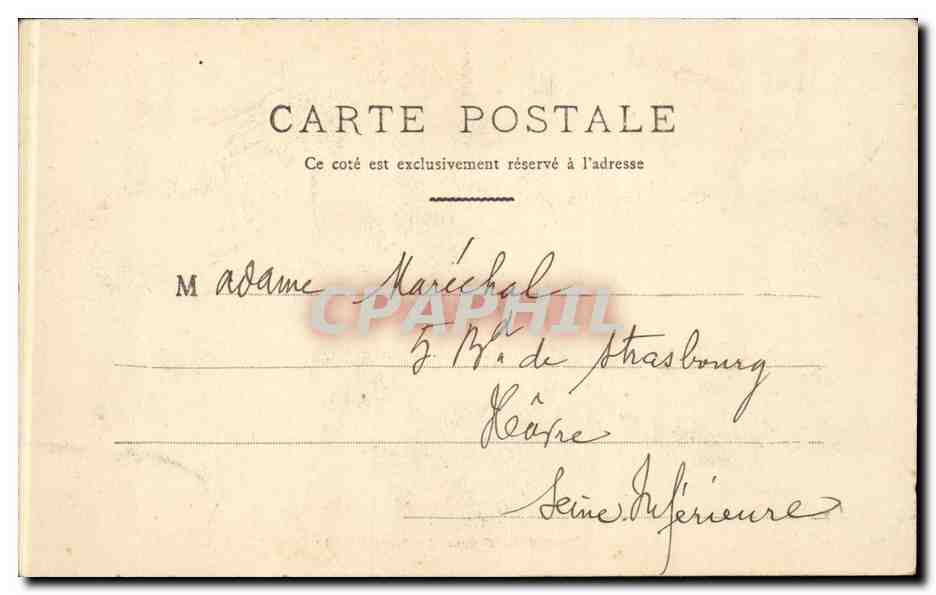 CARTE POSTALE
Ce coté est exclusivement réservé à l'adresse
Madame Maréchal
CPAPHIL
5 Bd. de Strasbourg
Hâvre
Seine Inférieure